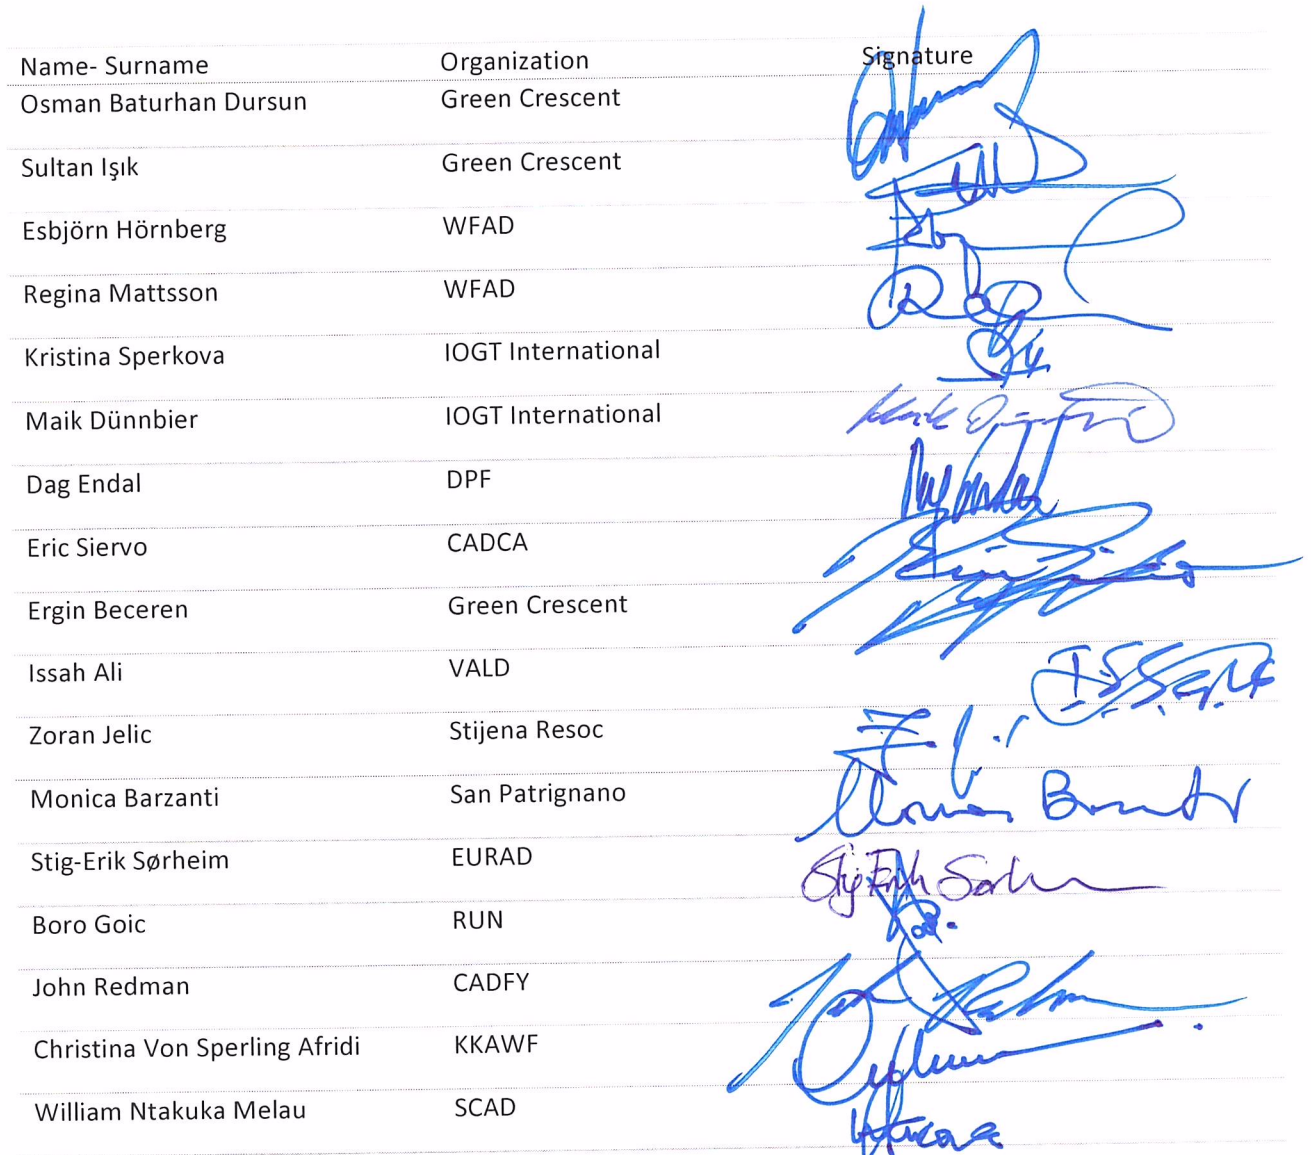 Name- Surname Organization Signature
Osman Baturhan Dursun Green Crescent
Sultan Işık Green Crescent
Esbjörn Hörnberg WFAD
Regina Mattsson WFAD
Kristina Sperkova IOGT International
Maik Dünnbier IOGT International
Dag Endal DPF
Eric Siervo CADCA
Ergin Beceren Green Crescent
Issah Ali VALD
Zoran Jelic Stijena Resoc
Monica Barzanti San Patrignano
Stig-Erik Sørheim EURAD
Boro Goic RUN
John Redman CADFY
Christina Von Sperling Afridi KKAWF
William Ntakuka Melau SCAD